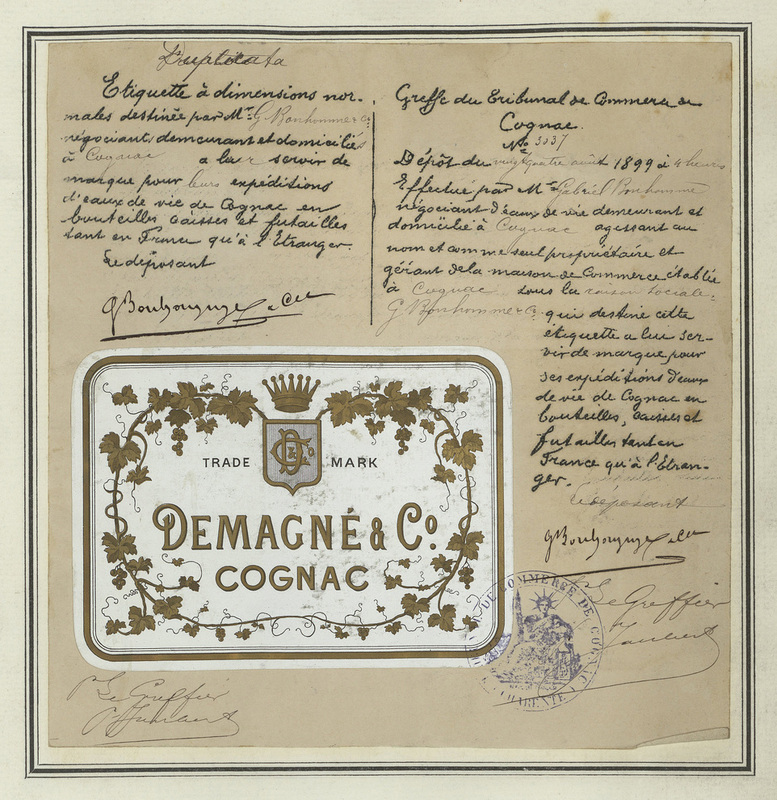 Duplicata
Etiquette à dimensions nor-
males destinée par Mr. G Bonhomme & Co
négociants demeurant et domiciliés
à Cognac a leur servir de
marque pour leurs expéditions
d'eaux de vie de Cognac en
bouteilles caisses et futailles
tant en France qu'à l'Etranger.
Le déposant
G Bonhomme & Cie
Greffe du Tribunal de Commerce de
Cognac.
No 3037
Dépôt du vingt quatre août 1899 à 4 heures
Effectué par Mr. Gabriel Bonhomme
négociant d'eaux de vie demeurant et
domicilié à Cognac agissant au
nom et comme seul propriétaire et
gérant de la maison de Commerce établie
à Cognac sous la raison sociale:
G Bonhomme & Co. qui destine cette
étiquette a lui ser-
vir de marque pour
ses expéditions d'eaux
de vie de Cognac en
bouteilles, caisses et
futailles tant en
France qu'à l'Etran-
ger.
Le déposant
G Bonhomme & Cie
TRADE MARK
DEMAGNÉ & Co
COGNAC
DE COMMERCE DE COGNAC
CHARENTE
Le Greffier
Le Greffier